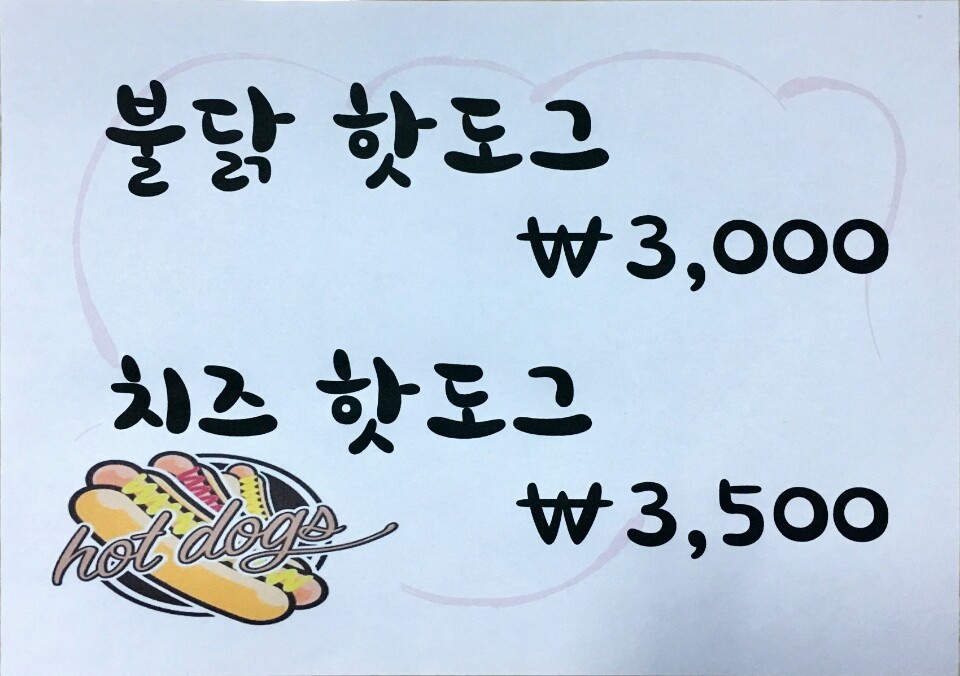 불닭 핫도그
₩3,000
치즈 핫도그
₩3,500
hot dogs